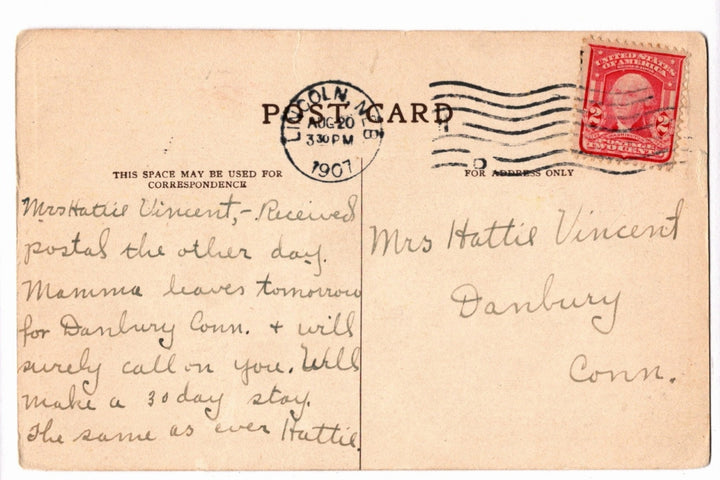 POST CARD
LINCOLN, NEB
AUG 20
3 30 PM
1907
UNITED STATES
OF AMERICA
2 2
POSTAGE
TWO CENTS
THIS SPACE MAY BE USED FOR
CORRESPONDENCE
FOR ADDRESS ONLY
Mrs Hattie Vincent,- Received
postal the other day.
Mamma leaves tomorrow
for Danbury Conn. + will
surely call on you. Will
make a 30 day stay.
The same as ever Hattie.
Mrs Hattie Vincent
Danbury
Conn.